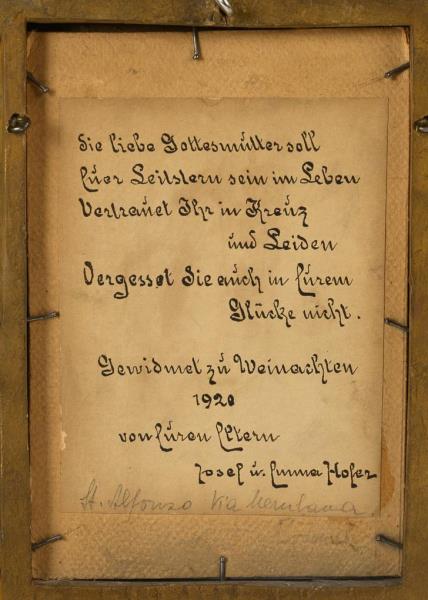 Die liebe Gottesmutter soll
Euer Leitstern sein im Leben
Vertrauet Ihr in Kreuz
und Leiden
Vergesset Sie auch in Eurem
Glücke nicht.
Gewidmet zu Weinachten
1920
von Euren Eltern
Josef u. Emma Hofer
St. Alfonso Via